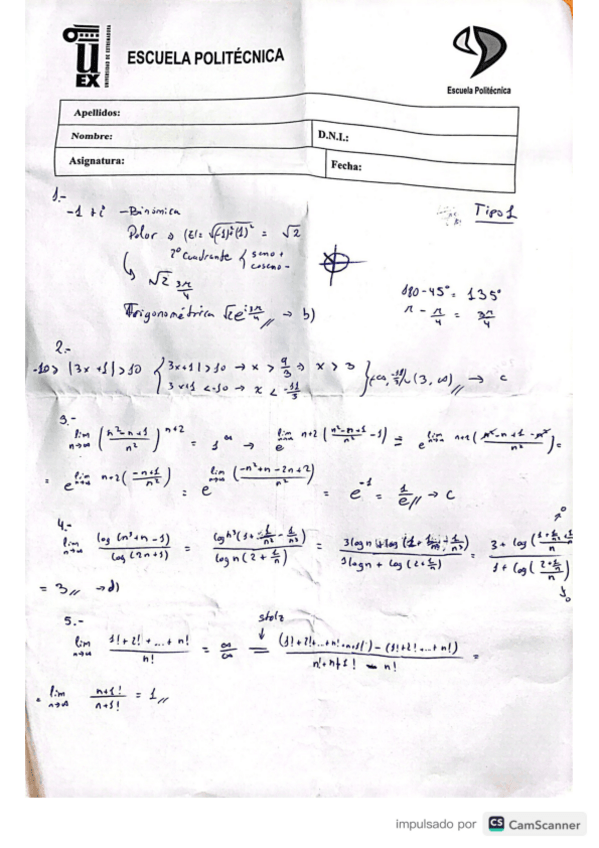 UEX
UNIVERSIDAD DE EXTREMADURA
ESCUELA POLITÉCNICA
Escuela Politécnica
Apellidos:
Nombre:
D.N.I.:
Asignatura:
Fecha:
1.-
-1 + i - Binómica
Tipo 1
Polar → |z| = √(-1)²(1)² = √2
2º cuadrante { seno + coseno -
√2 3π/4
180 - 45º = 135º
Trigonométrica √2 e^(i 3π/4) // → b)
π - π/4 = 3π/4
2.-
-10 > |3x + 1| > 10 { 3x+1 > 10 → x > 9/3 → x > 3
3x+1 < -10 → x < -11/3 } (-∞, -11/3) ∪ (3, ∞) // → c
3.-
lim n→∞ (n²-n+1/n²)^(n+2) = 1^∞ → e^(lim n→∞ n+2 (n²-n+1/n² - 1)) = e^(lim n→∞ n+2 (n²-n+1-n²/n²)) =
= e^(lim n→∞ n+2 (-n+1/n²)) = e^(lim n→∞ (-n²+n-2n+2/n²)) = e^-1 = 1/e // → c
4.-
lim n→∞ log (n³+n-1) / log (2n+1) = log n³ (1+1/n²-1/n³) / log n (2+1/n) = 3 log n + log (1+1/n²+1/n³) / 1 log n + log (2+1/n) =
= 3 // → d)
5.-
stolz
lim n→∞ 1!+2!+...+n! / n! = ∞/∞ = (1!+2!+...+n!+n+1!) - (1!+2!+...+n!) / n!+n+1! - n! =
= lim n→∞ n+1! / n+1! = 1 //
impulsado por CS CamScanner